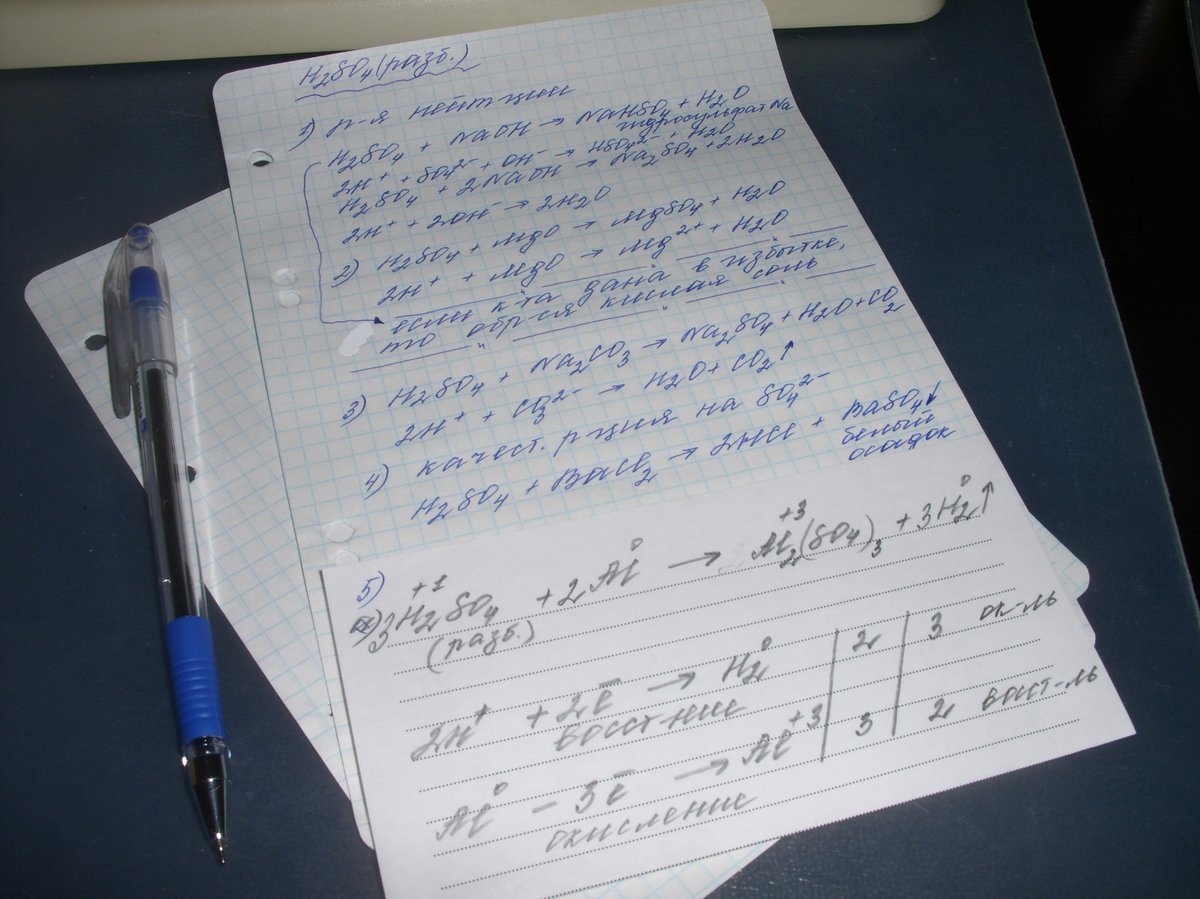 H₂SO₄(разб.)
1) р-я нейт-ции
H₂SO₄ + NaOH → NaHSO₄ + H₂O
гидросульфат Na
2H⁺ + SO₄²⁻ + OH⁻ → HSO₄²⁻ + H₂O
H₂SO₄ + 2NaOH → Na₂SO₄ + 2H₂O
2H⁺ + 2OH⁻ → 2H₂O
2) H₂SO₄ + MgO → MgSO₄ + H₂O
2H⁺ + MgO → Mg²⁺ + H₂O
если к-та дана в избытке,
то обр-ся кислая соль
3) H₂SO₄ + Na₂CO₃ → Na₂SO₄ + H₂O + CO₂
2H⁺ + CO₃²⁻ → H₂O + CO₂↑
4) качест. р-ция на SO₄²⁻
H₂SO₄ + BaCl₂ → 2HCl + BaSO₄↓
белый
осадок
5)
3H₂⁺¹SO₄ + 2Al⁰ → Al₂⁺³(SO₄)₃ + 3H₂⁰↑
(разб.)
2H⁺ + 2ē → H₂⁰ | 2 | 3 ок-ль
восст-ние
Al⁰ - 3ē → Al⁺³ | 3 | 2 восст-ль
окисление